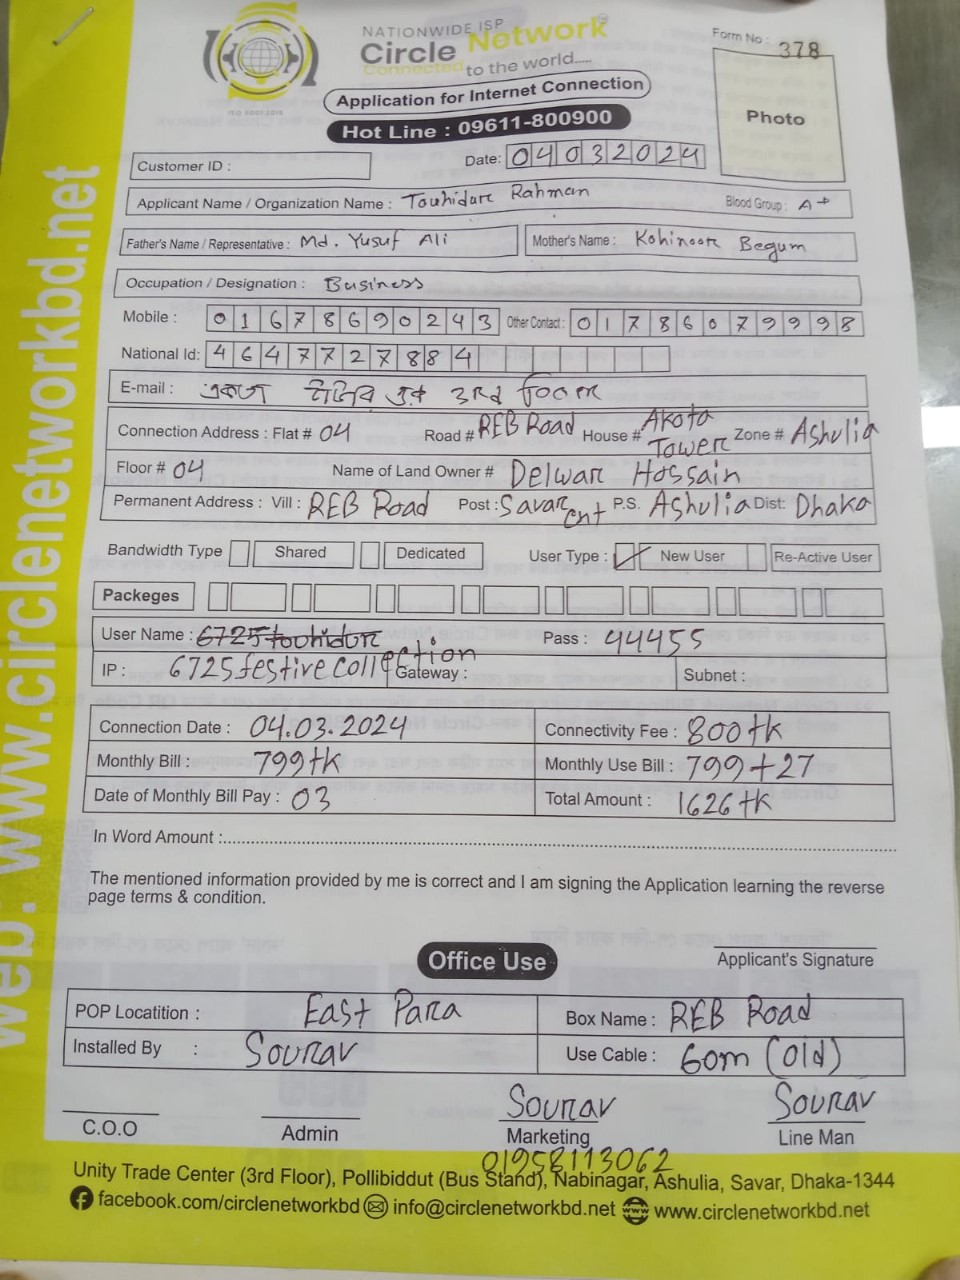 NATIONWIDE ISP
Circle Network
Connected to the world.....
Form No : 378
ISO 9001:2015
Application for Internet Connection
Photo
Hot Line : 09611-800900
Customer ID :
Date: 04032024
Applicant Name / Organization Name : Touhidur Rahman Blood Group : A+
Father's Name / Representative : Md. Yusuf Ali Mother's Name : Kohinoor Begum
Occupation / Designation : Business
Mobile : 01678690243 Other Contact : 01786079998
National Id: 4647727884
E-mail : 3rd
Connection Address : Flat # 04 Road # REB Road House # Akota Tower Zone # Ashulia
Floor # 04 Name of Land Owner # Delwar Hossain
Permanent Address : Vill : REB Road Post : Savar cnt P.S. Ashulia Dist: Dhaka
Bandwidth Type Shared Dedicated User Type : New User Re-Active User
Packeges
User Name : 6725touhidur Pass : 44455
6725festivecollection
IP : Gateway : Subnet :
Connection Date : 04.03.2024 Connectivity Fee : 800tk
Monthly Bill : 799tk Monthly Use Bill : 799+27
Date of Monthly Bill Pay : 03 Total Amount : 1626tk
In Word Amount :
The mentioned information provided by me is correct and I am signing the Application learning the reverse
page terms & condition.
Applicant's Signature
Office Use
POP Locatition : East Para Box Name : REB Road
Installed By : Sourav Use Cable : 60m (old)
Sourav Sourav
C.O.O Admin Marketing Line Man
01958113062
Unity Trade Center (3rd Floor), Pollibiddut (Bus Stand), Nabinagar, Ashulia, Savar, Dhaka-1344
facebook.com/circlenetworkbd info@circlenetworkbd.net www.circlenetworkbd.net
web: www.circlenetworkbd.net